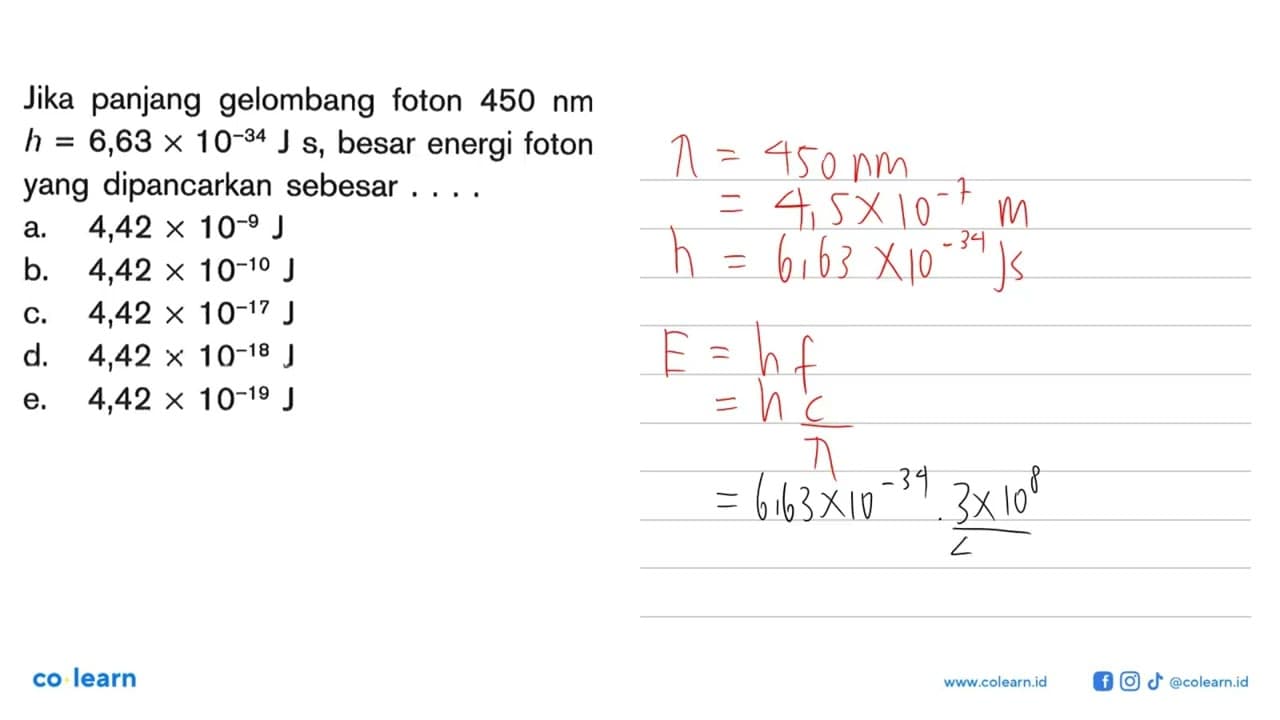 Jika panjang gelombang foton 450 nm
h = 6,63 × 10⁻³⁴ J s, besar energi foton
yang dipancarkan sebesar . . . .
a. 4,42 × 10⁻⁹ J
b. 4,42 × 10⁻¹⁰ J
c. 4,42 × 10⁻¹⁷ J
d. 4,42 × 10⁻¹⁸ J
e. 4,42 × 10⁻¹⁹ J
λ = 450 nm
= 4,5 × 10⁻⁷ m
h = 6,63 × 10⁻³⁴ Js
E = h f
= h c
λ
= 6,63 × 10⁻³⁴ . 3 × 10⁸
co learn
www.colearn.id
@colearn.id